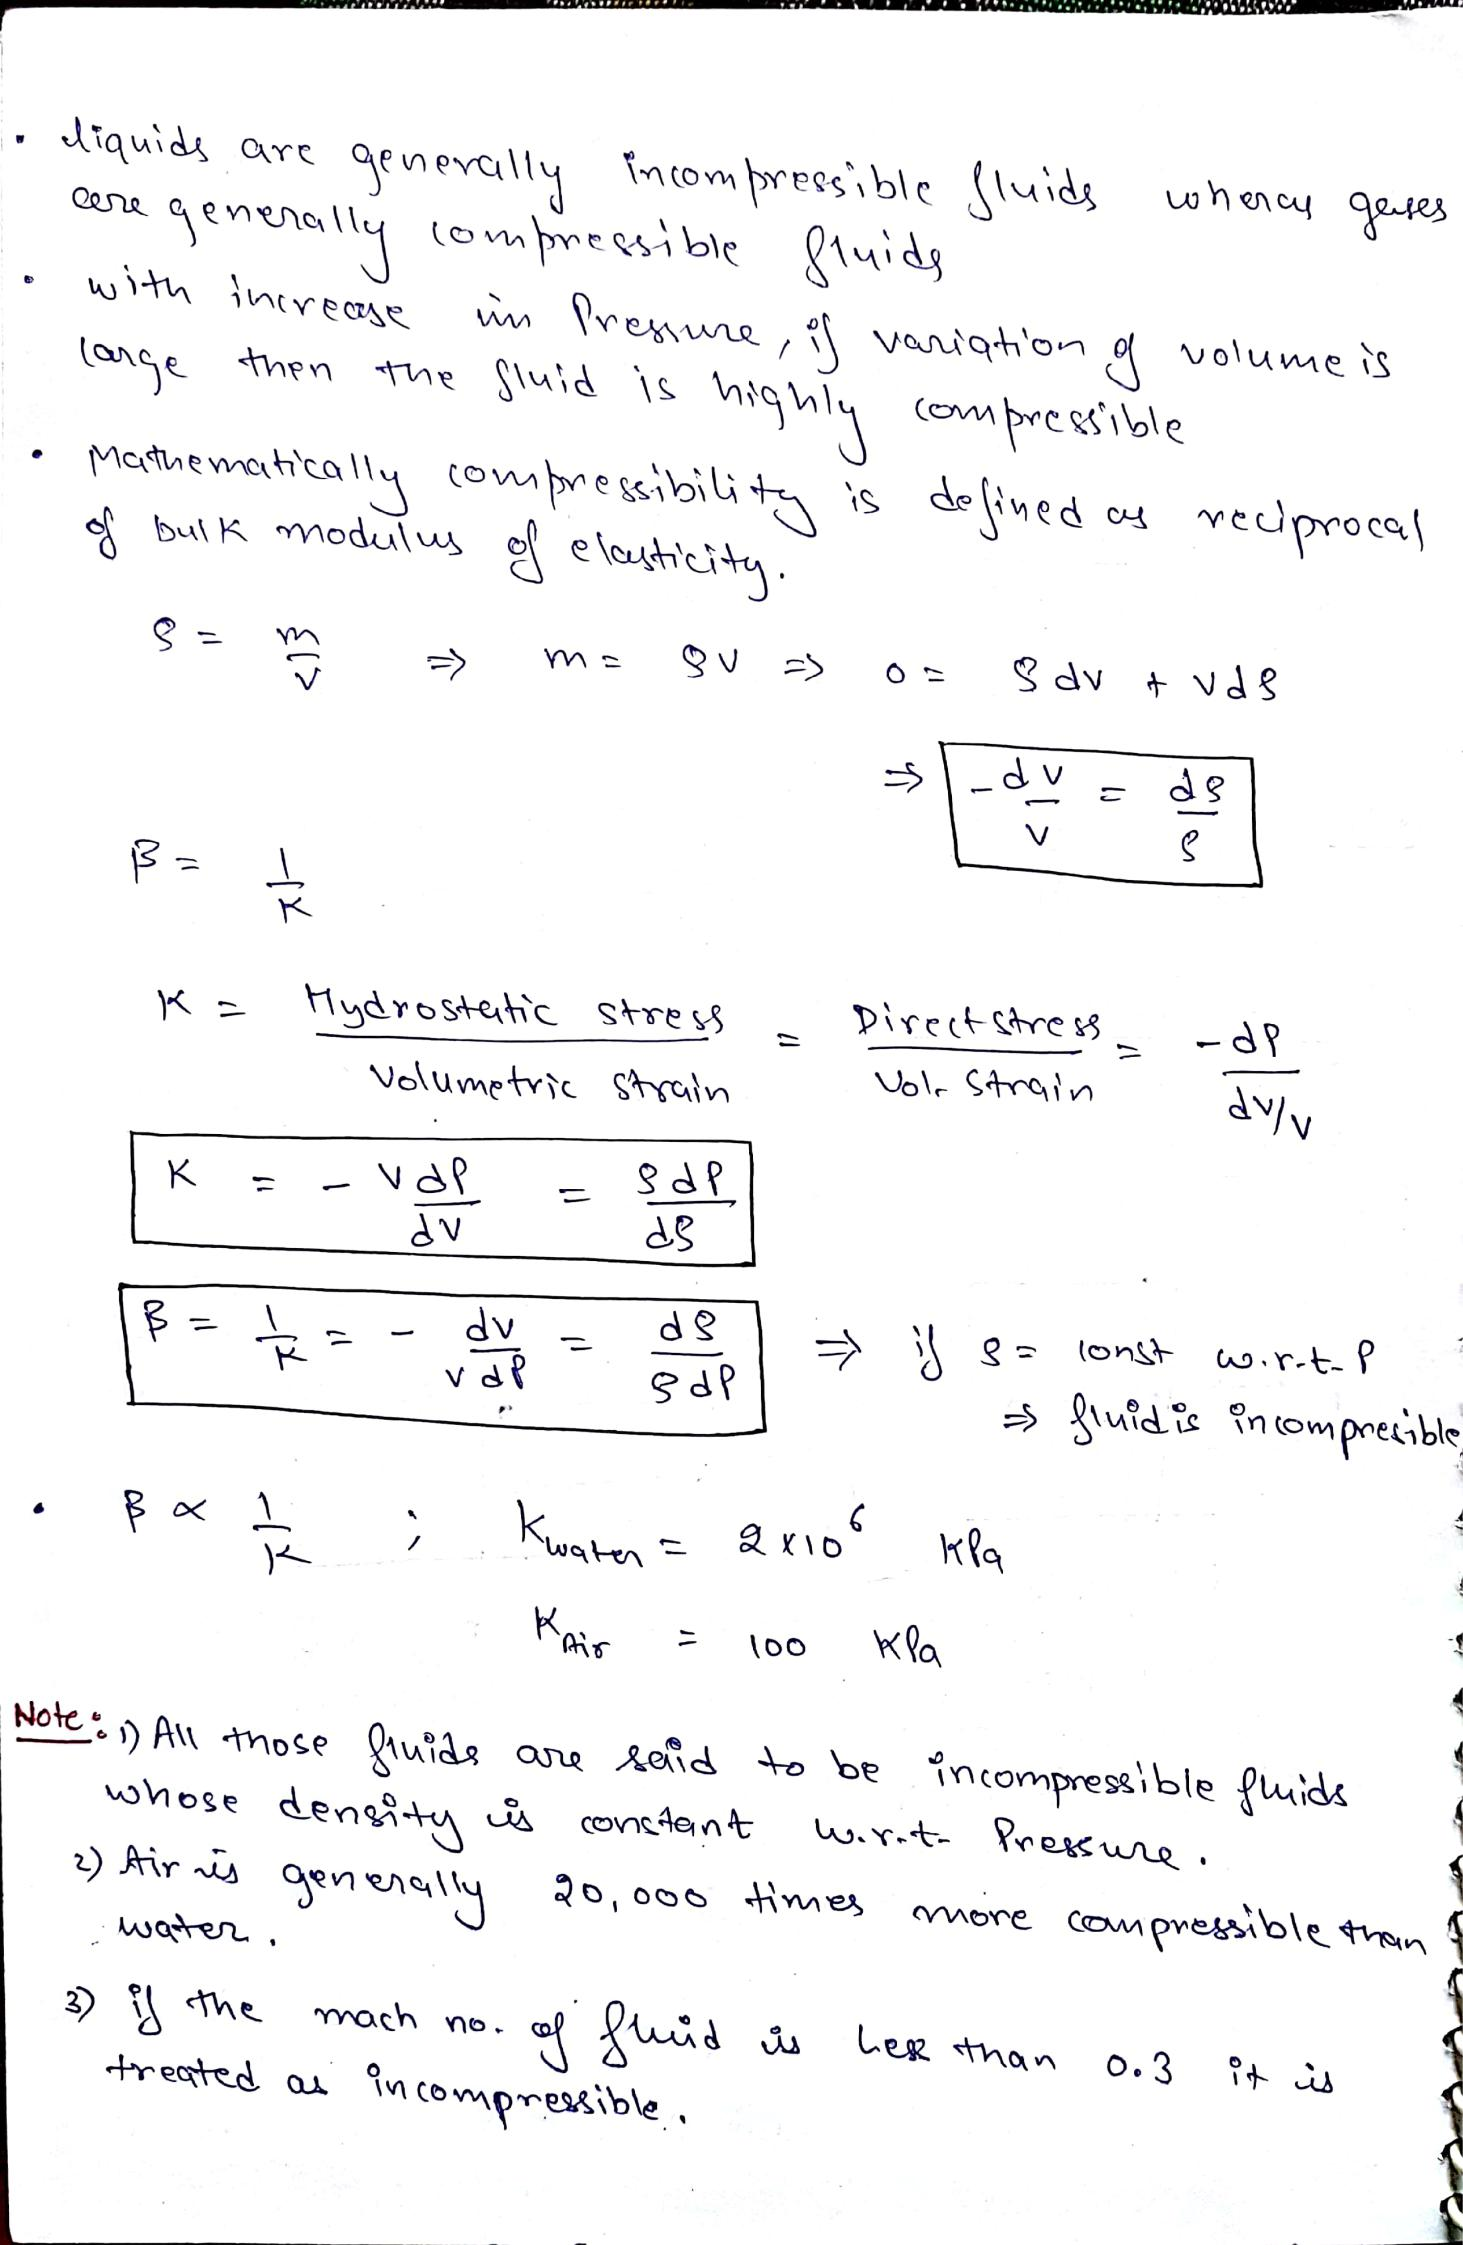 • liquids are generally incompressible fluids wheras gases
are generally compressible fluids
• with increase in Pressure, if variation of volume is
large then the fluid is highly compressible
• Mathematically compressibility is defined as reciprocal
of bulk modulus of elasticity.
ρ = m/v ⇒ m = ρv ⇒ 0 = ρdv + vdρ
⇒ -dv/v = dρ/ρ
β = 1/K
K = Hydrostatic stress / Volumetric strain = Direct stress / Vol. Strain = -dP / dv/v
K = - vdP/dv = ρdP/dρ
β = 1/K = - dv/vdP = dρ/ρdP ⇒ if ρ = const w.r.t. P
⇒ fluid is incompresible
• β ∝ 1/K ; Kwater = 2x10⁶ KPa
KAir = 100 KPa
Note: 1) All those fluids are said to be incompressible fluids
whose density is constant w.r.t. Pressure.
2) Air is generally 20,000 times more compressible than
water.
3) if the mach no. of fluid is less than 0.3 it is
treated as incompressible.